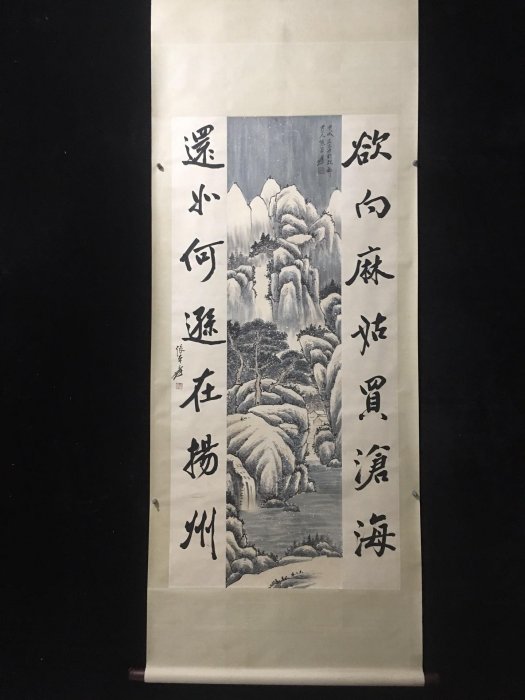 欲向麻姑買滄海
還如何遜在揚州